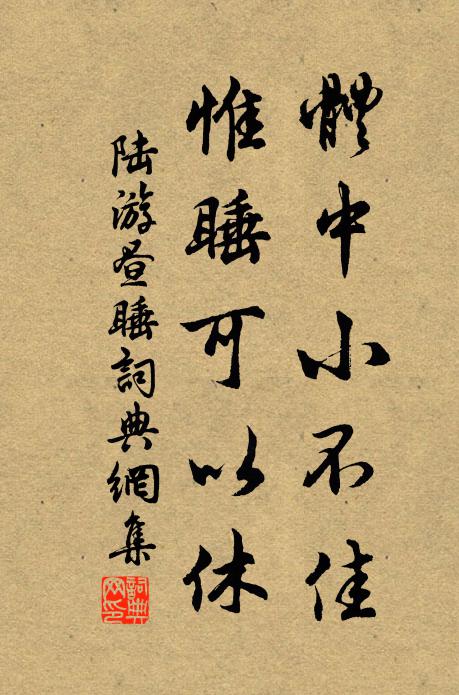 體中小不佳
惟睡可以休
陸游昼睡詞典網集
詞典网印